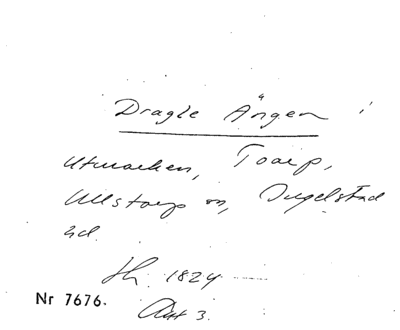 Dragle Ängen i
Utmarken, Toarp,
Ullstorp sn, Ingelstad
hd.
Sk. 1824
Nr 7676.
Akt 3.